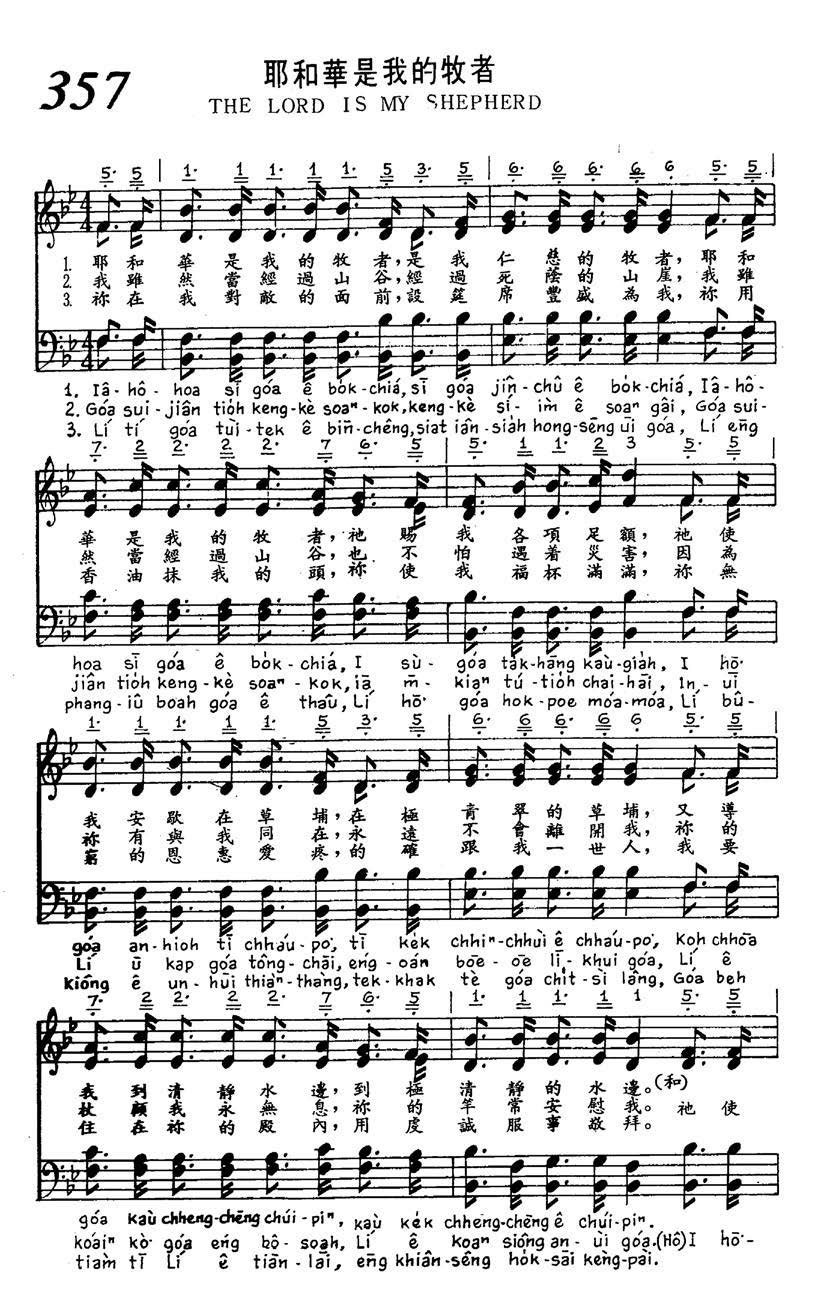 357
耶和華是我的牧者
THE LORD IS MY SHEPHERD
5· 5 1· 1 1· 1 1· 5 3· 5 6· 6 6· 6 6 5· 5
1. 耶和華是我的牧者,是我仁慈的牧者,耶和
2. 我雖然當經過山谷,經過死蔭的山崖,我雖
3. 祢在我對敵的面前,設筵席豐盛為我,祢用
1. Iâ-hô-hoa sī góa ê bo̍k-chiá, sī góa jîn-chû ê bo̍k-chiá, Iâ-hô-
2. Góa sui-jiân tio̍h keng-kè soaⁿ-kok, keng-kè sí-ìm ê soaⁿ gâi, Góa sui-
3. Lí tī góa tùi-te̍k ê bīn-chêng, siat iân-sia̍h hong-sēng ūi góa, Lí ēng
7· 2 2· 2 2· 7 6· 5 5· 1 1· 2 3 5· 5
華是我的牧者,祂賜我各項足額,祂使
然當經過山谷,也不怕遇着災害,因為
香油抹我的頭,祢使我福杯滿滿,祢無
hoa sī góa ê bo̍k-chiá, I sù-góa ta̍k-hāng kaù-gia̍h, I hō͘
jiân tio̍h keng-kè soaⁿ-kok, iā m̄-kiaⁿ tú-tio̍h chai-hāi, In-ūi
phang-iû boah góa ê thaû, Lí hō͘ góa hok-poe móa-móa, Lí bû-
1· 1 1· 1 1· 5 3· 5 6· 6 6· 6 6 5· 5
我安歇在草埔,在極青翠的草埔,又導
祢有與我同在,永遠不會離開我,祢的
窮的恩惠愛疼,的確跟我一世人,我要
góa an-hioh tī chháu-po͘, tī ke̍k chhiⁿ-chhuì ê chháu-po͘, Koh chhōa
Lí ū kap góa tông-chāi, éng-oán bōe-ōe lī-khui góa, Lí ê
kiông ê un-hūi thiàⁿ-thang, tek-khak tè góa chi̍t-sì lâng, Góa beh
7· 2 2· 2 2· 7 6· 5 1· 1 1· 1 1 5· 5
我到清靜水邊,到極清靜的水邊。(和)
杖顧我永無息,祢的竿常安慰我。祂使
住在祢的殿內,用虔誠服事敬拜。
góa kaù chheng-chēng chúi-piⁿ, kaù ke̍k chheng-chēng ê chúi-piⁿ.
koáiⁿ kò͘ góa éng bô-soah, Lí ê koaⁿ siông an-ùi góa. (Hô) I hō͘-
tiàm tī Lí ê tiān-lāi, ēng khiân-sêng ho̍k-sāi kèng-pài.